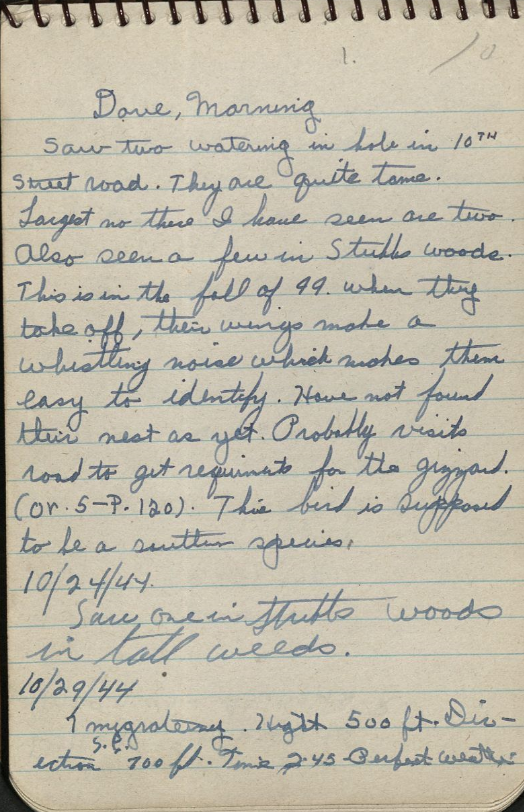 1. 10
Dove, Morning
Saw two watering in hole in 10TH
Street road. They are quite tame.
Largest no there I have seen are two.
Also seen a few in Stubbs woods.
This is in the fall of 44. when they
take off, their wings make a
whistling noise which makes them
easy to identify. Have not found
their nest as yet. Probably visits
road to get requirments for the gizzard.
(Or. 5-P. 120). This bird is supposed
to be a species.
10/24/44.
Saw one in Stubbs woods
in tall weeds.
10/29/44
1 migrateing. Hight 500 ft. Dir-
ection S.E. 700 ft. Time 2:45 Perfect weather